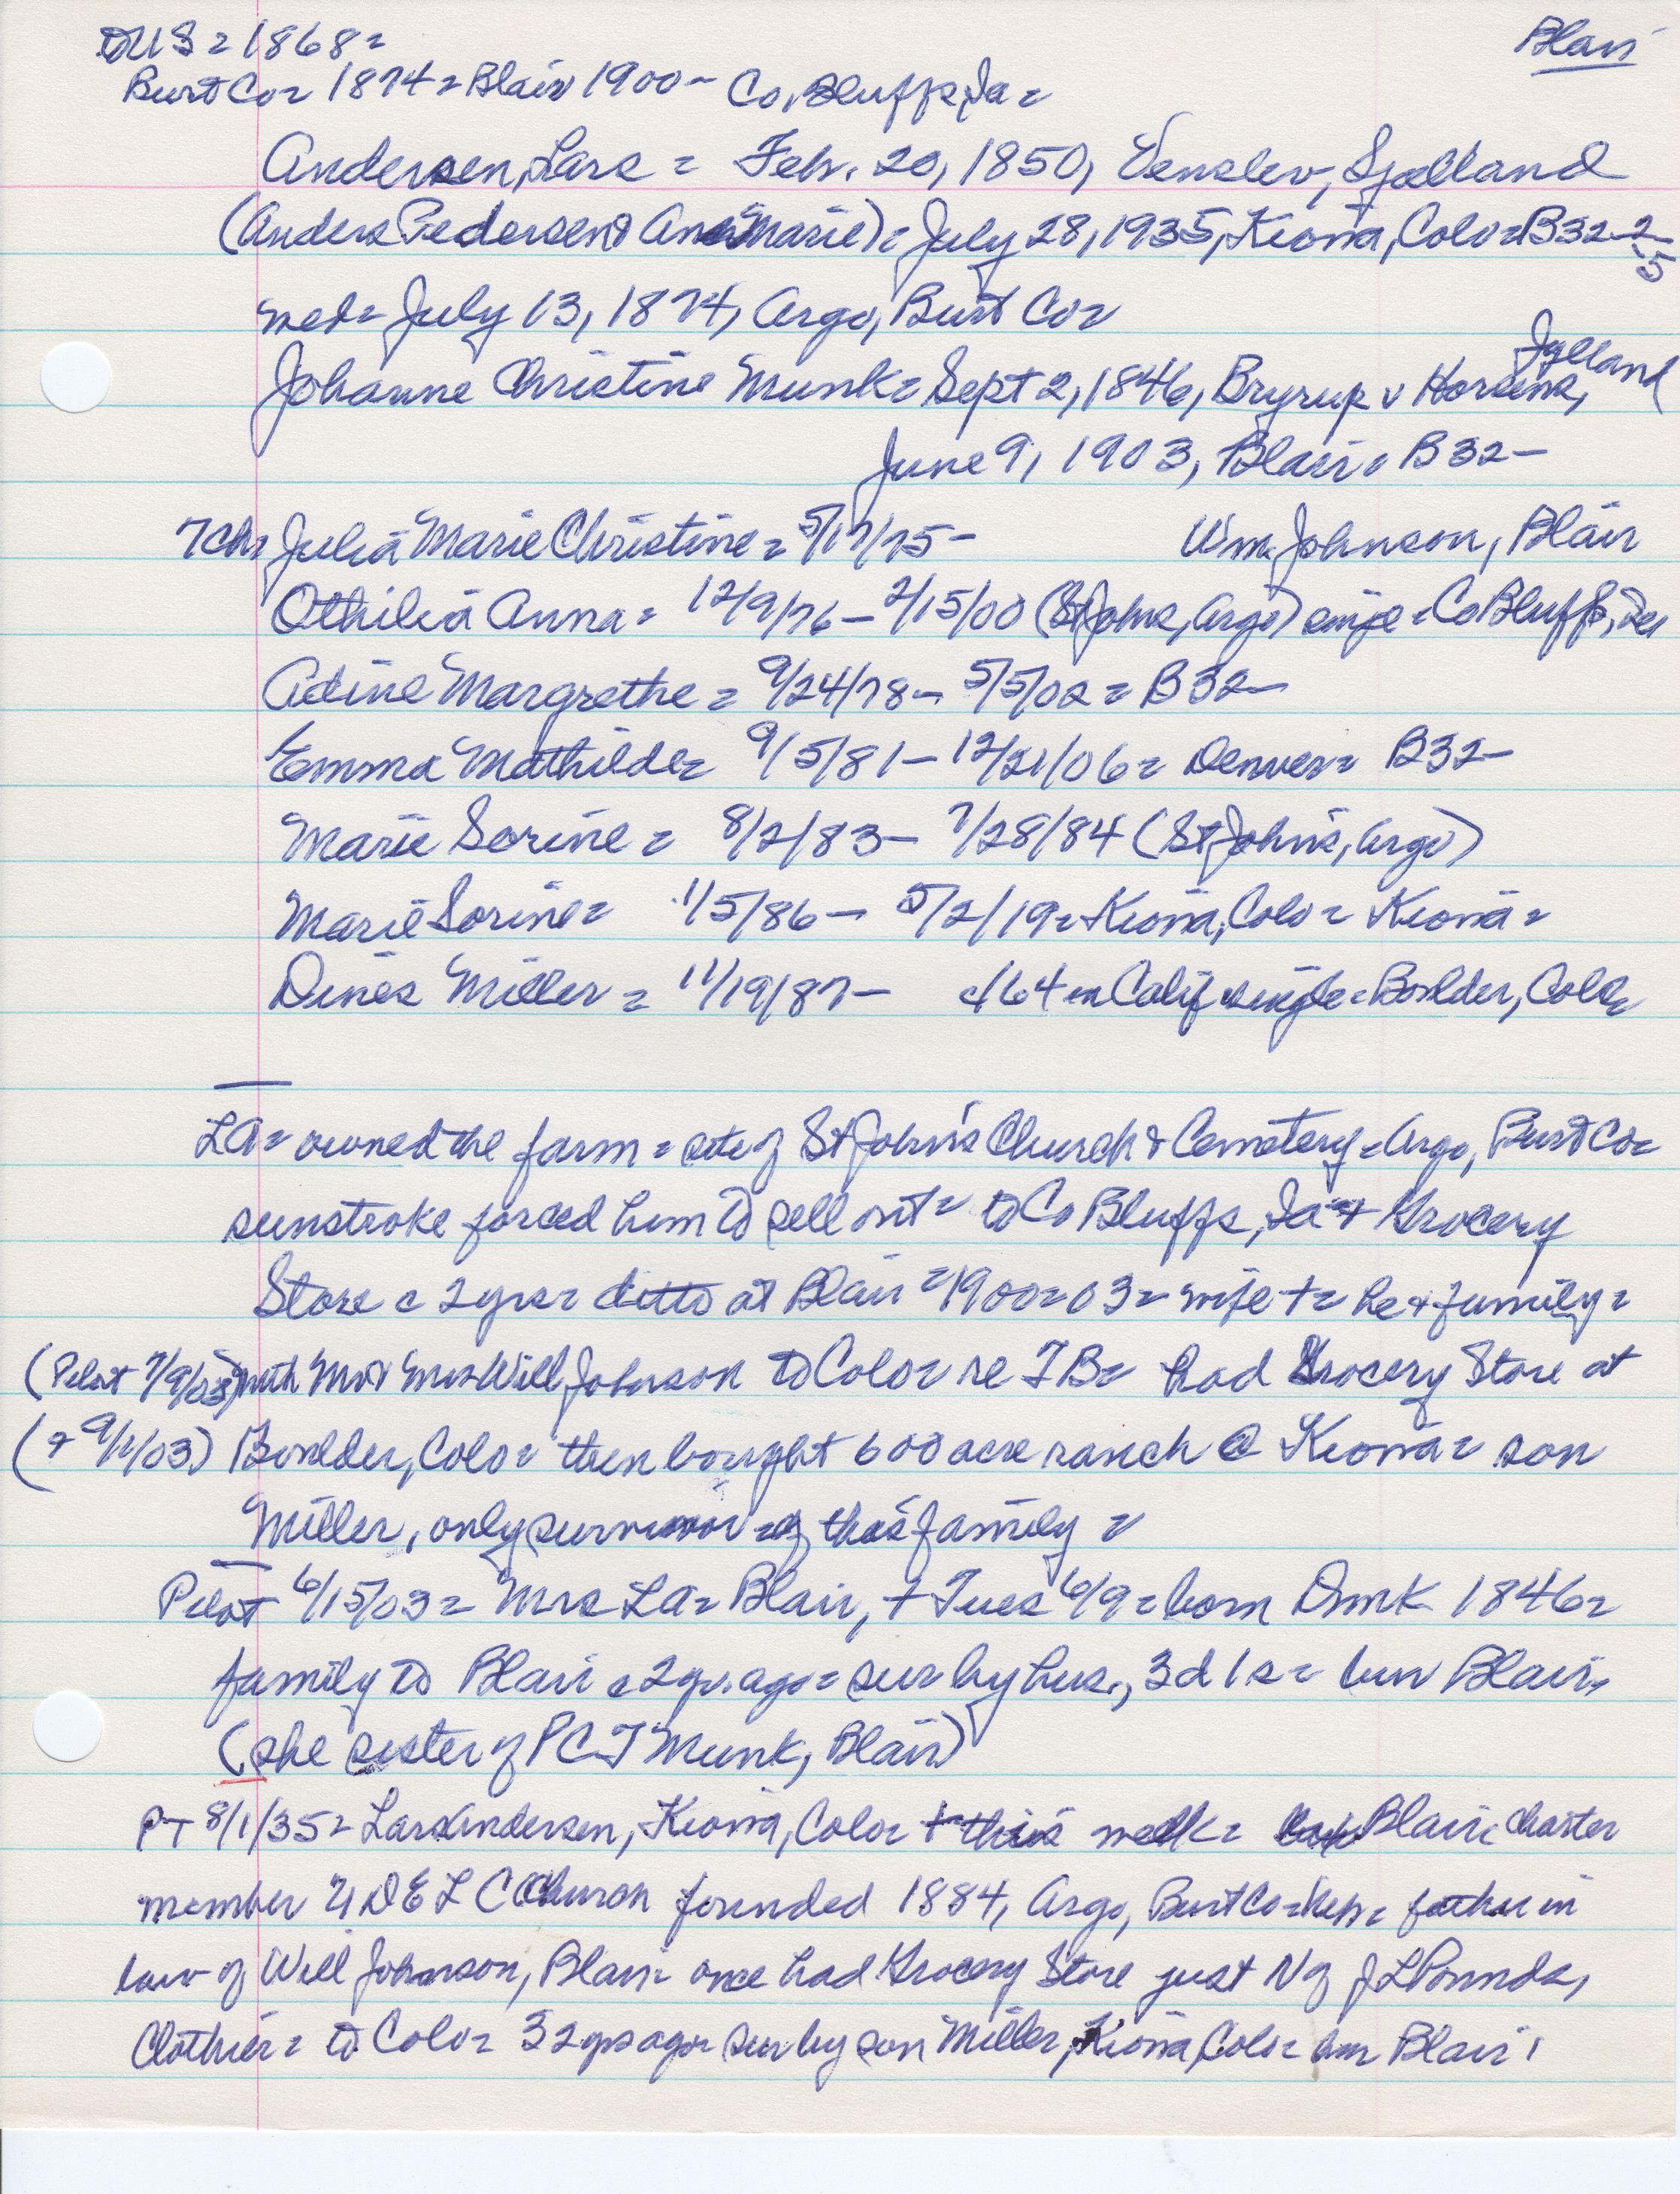 Blair
to US = 1868 =
Burt Co = 1874 = Blair 1900 - Co. Bluffs, Ia =
Andersen, Lars = Feb. 20, 1850, Venslev, Sjælland
(Anders Pedersen & Marie) = July 28, 1935, Kiowa, Colo = B32-2-5
med = July 13, 1874, Argo, Burt Co =
Johanne Christine Munk = Sept 2, 1846, Bryrup v Horsens, Jylland
June 9, 1903, Blair = B32-
7 ch = Julia Marie Christine = 5/17/75 - Wm. Johnson, Blair
Othilia Anna = 12/9/76 - 2/15/00 (St Johns, Argo) single = Co Bluffs, Ia
Adine Margrethe = 9/24/78 - 5/5/02 = B32-
Emma Mathilde = 9/5/81 - 12/21/06 = Denver = B32-
Marie Sorine = 8/2/83 - 7/28/84 (St John's, Argo)
Marie Sorine = 1/5/86 - 5/2/19 = Kiowa, Colo = Kiowa =
Dines Miller = 11/19/87 - c/64 in Calif single = Boulder, Colo =
LA = owned the farm = site of St John's Church & Cemetery = Argo, Burt Co =
sunstroke forced him to sell out = to Co Bluffs, Ia + Grocery
Store c 2 yrs = ditto at Blair = 1900 = 03 = wife + = he & family =
(Pilot 7/9/03) with Mr & Mrs Will Johnson to Colo = re TB = had Grocery Store at
(& 9/1/03) Boulder, Colo = then bought 600 acre ranch @ Kiowa = son
Miller, only survivor of this family =
Pilot 6/15/03 = Mrs LA = Blair, + Tues 6/9 = born Dmk 1846 =
family to Blair c 2 yr. ago = sur by hus., 3 d 1 s = bur Blair,
(she sister of PCT Munk, Blair)
PT 8/1/35 = Lars Andersen, Kiowa, Colo = + this week = bur Blair = charter
member of DELC Church founded 1884, Argo, Burt Co = father in
law of Will Johnson, Blair = once had Grocery Store just N of J L Pounds,
Clothier = to Colo = 32 yrs ago = sur by son Miller, Kiowa, Colo = bur Blair